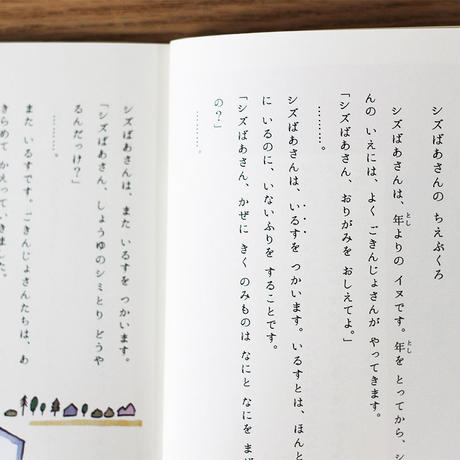 シズばあさんの ちえぶくろ
シズばあさんは、年よりの イヌです。年を とってから、シ
んの いえには、よく ごきんじょさんが やってきます。
「シズばあさん、おりがみを おしえてよ。」
………。
シズばあさんは、いるすを つかいます。いるすとは、ほんと
に いるのに、いないふりを することです。
「シズばあさん、かぜに きく のみものは なにと なにを まぜ
の?」
………。
シズばあさんは、また いるすを つかいます。
「シズばあさん、しょうゆのシミとり どうや
るんだっけ?」
………。
また いるすです。ごきんじょさんたちは、あ
きらめて かえっていきました。